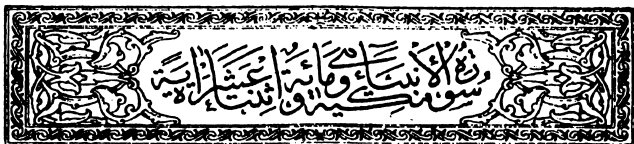 سورة الأنبياء مكية وهي مائة واثنتا عشرة آية